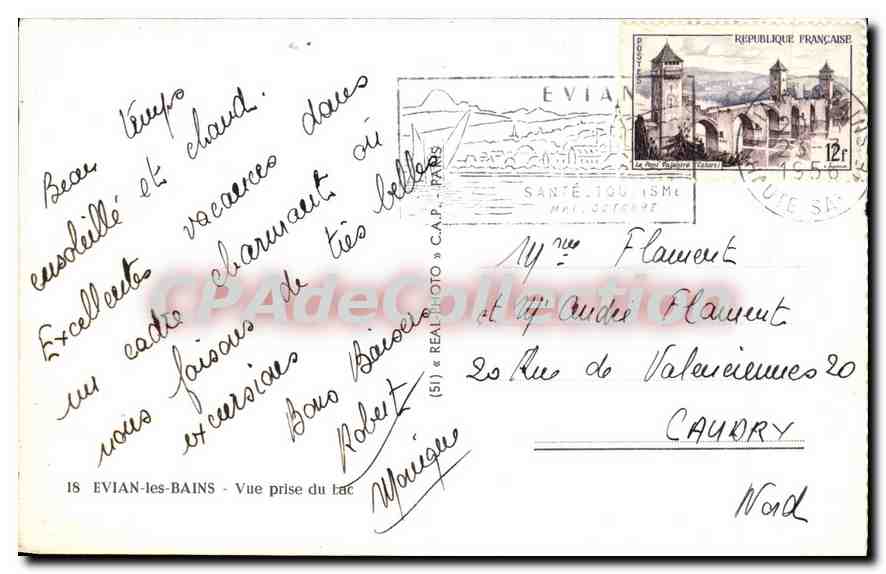 Beau temps
ensoleillé et chaud.
Excellentes vacances dans
un cadre charmant où
nous faisons de très belles
excursions
Bons Baisers
Robert
Monique
18 EVIAN-les-BAINS - Vue prise du Lac
(51) « REAL-PHOTO » C.A.P. - PARIS
EVIAN
SANTÉ.TOURISME
MAI.OCTOBRE
REPUBLIQUE FRANÇAISE
POSTES
Le Pont Valentré (Cahors)
12F
1956
HAUTE SAV
Mme Flament
et Mr André Flament
20 Rue de Valenciennes 20
CAUDRY
Nord
CPAdeCollection.com